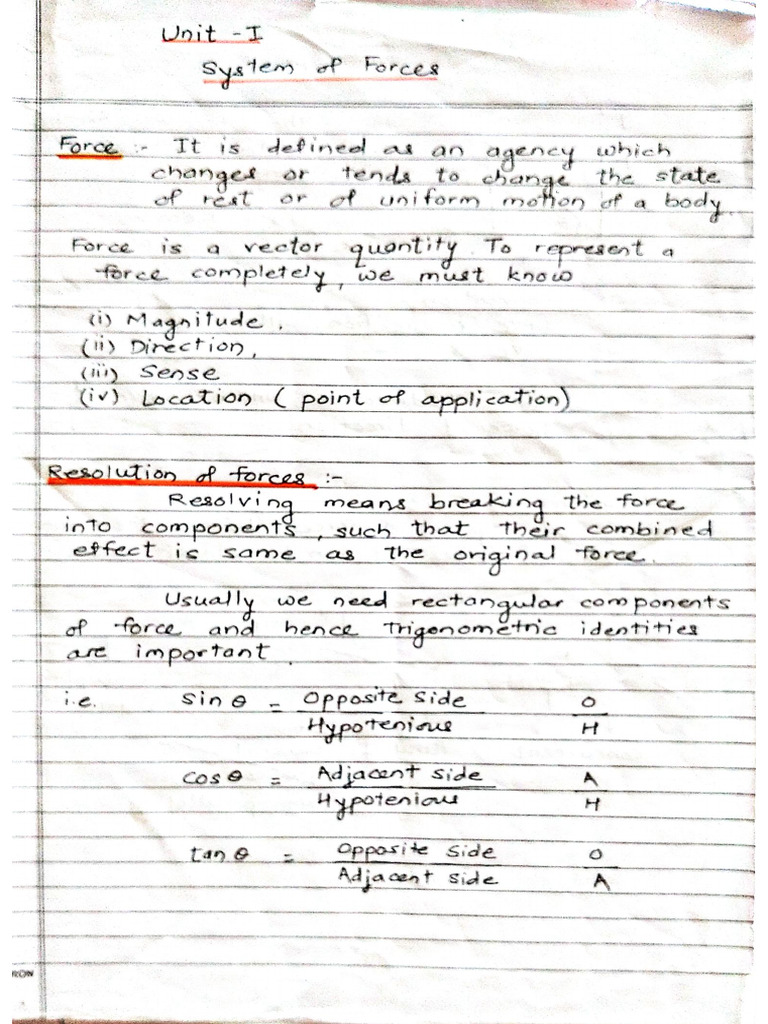 Unit - I
System of Forces
Force :- It is defined as an agency which
changes or tends to change the state
of rest or of uniform motion of a body.
Force is a vector quantity. To represent a
force completely, we must know
(i) Magnitude.
(ii) Direction,
(iii) Sense
(iv) Location ( point of application)
Resolution of forces :-
Resolving means breaking the force
into components, such that their combined
effect is same as the original force.
Usually we need rectangular components
of force and hence trigonometric identities
are important.
i.e. sin θ = Opposite Side O
Hypotenious H
cos θ = Adjacent side A
Hypotenious H
tan θ = Opposite Side O
Adjacent side A
RON